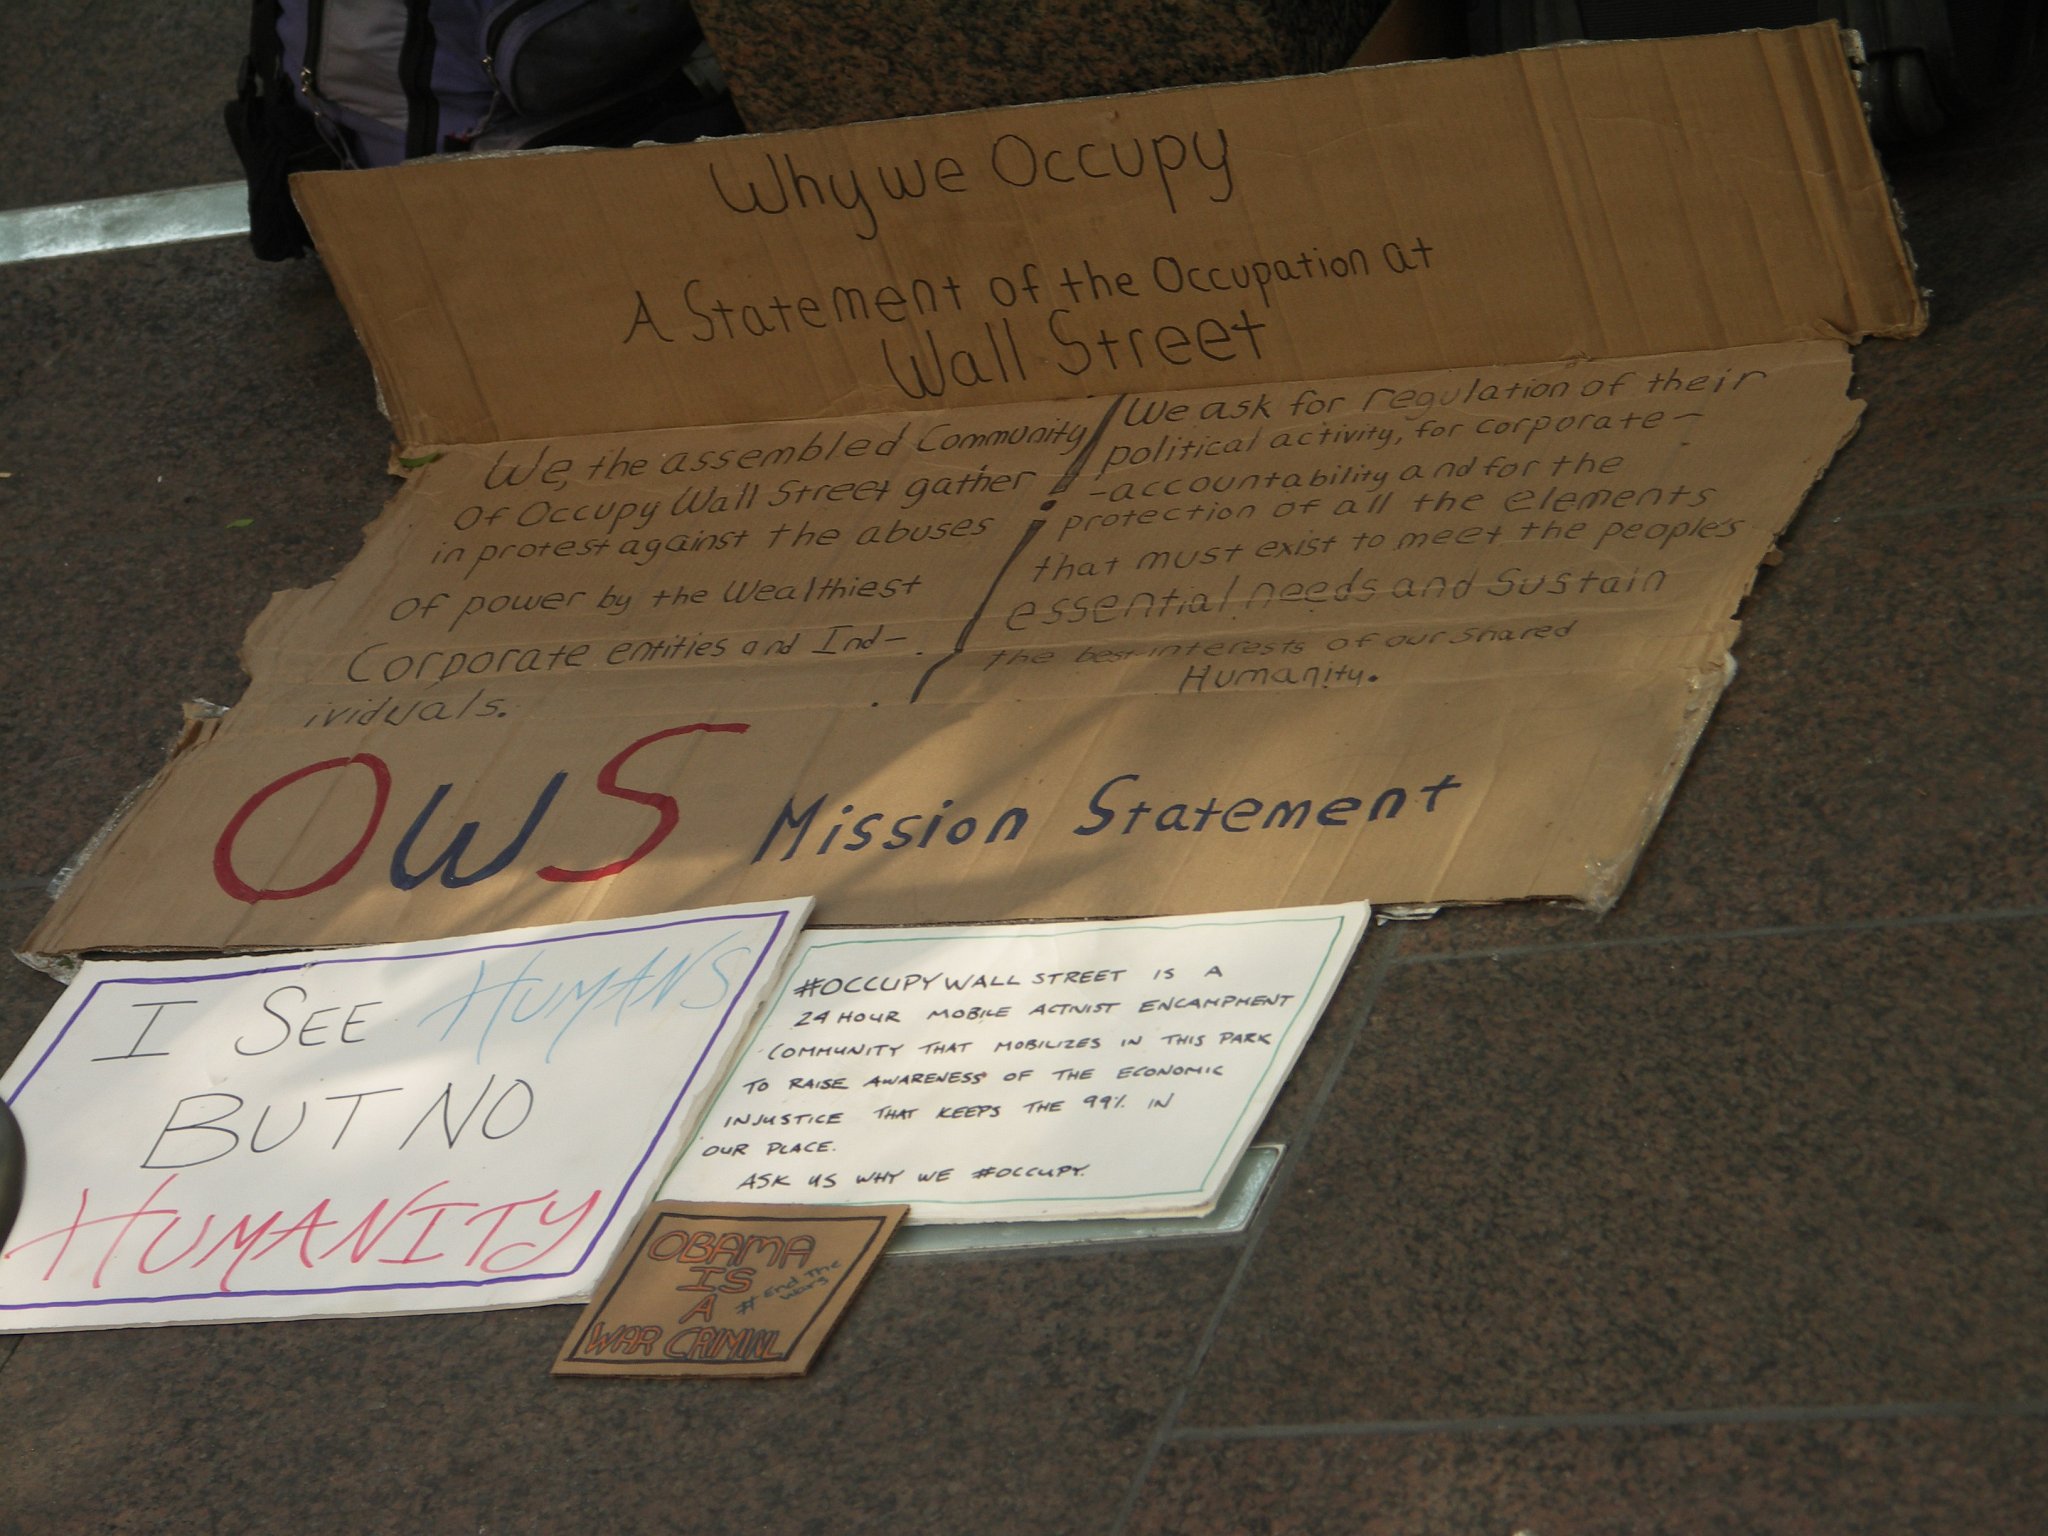 Why we Occupy
A Statement of the Occupation at
Wall Street
We, the assembled Community
Of Occupy Wall Street gather
in protest against the abuses
Of power by the Wealthiest
Corporate entities and Ind-
ividuals.
We ask for regulation of their
political activity, for corporate-
-accountability and for the
protection of all the elements
that must exist to meet the people's
essential needs and Sustain
the best interests of our shared
Humanity.
OWS Mission Statement
I SEE HUMANS
BUT NO
HUMANITY
#OCCUPY WALL STREET IS A
24 HOUR MOBILE ACTIVIST ENCAMPMENT
COMMUNITY THAT MOBILIZES IN THIS PARK
TO RAISE AWARENESS OF THE ECONOMIC
INJUSTICE THAT KEEPS THE 99% IN
OUR PLACE.
ASK US WHY WE #OCCUPY.
OBAMA
IS
A
WAR CRIMINL
# End The
Wars